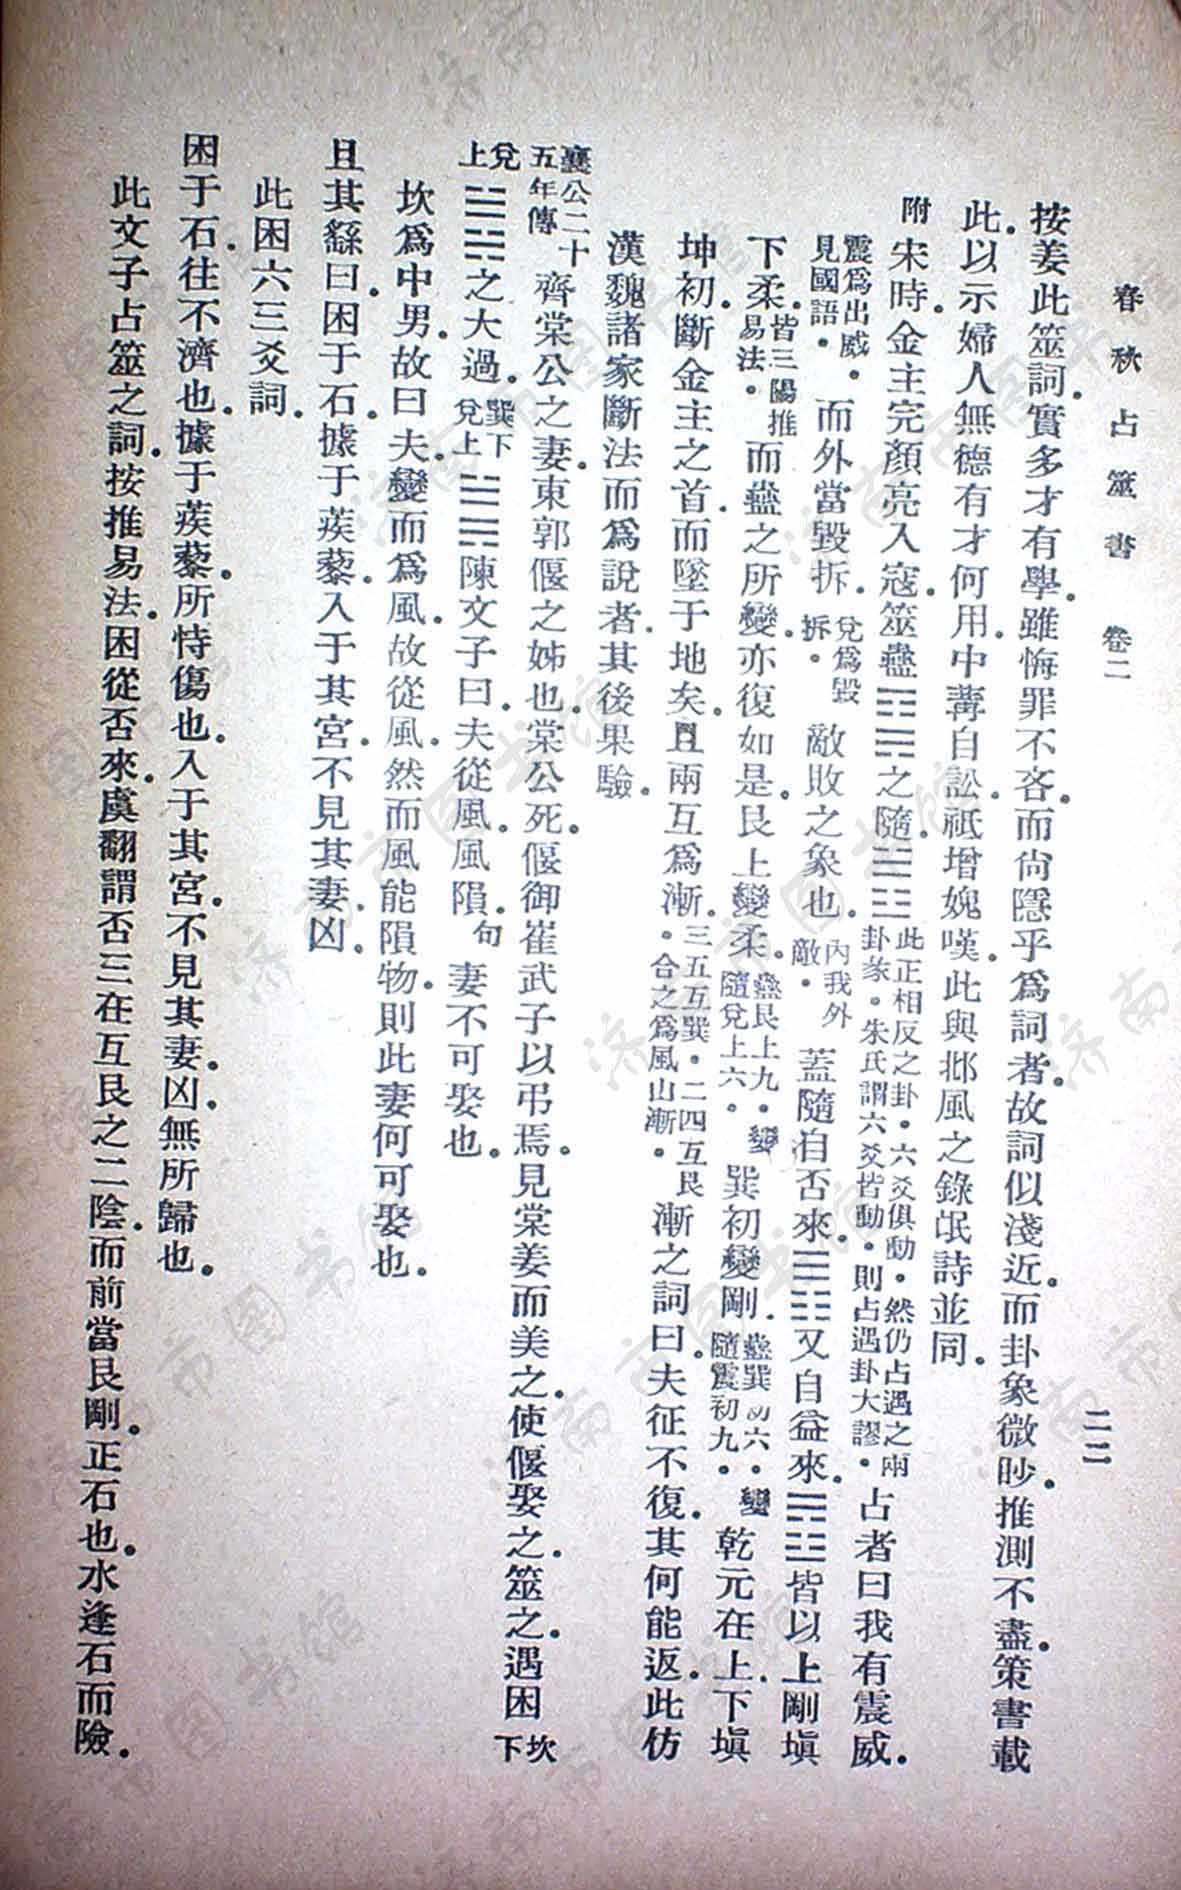 春秋占筮書 卷二 二二
按姜此筮詞。實多才有學。雖悔罪不吝。而尙隱乎爲詞者。故詞似淺近。而卦象微眇。推測不盡。策書載
此。以示婦人無德有才何用。中冓自訟。祇增媿嘆。此與邶風之錄氓詩並同。
附 宋時。金主完顏亮入寇。筮蠱䷑之隨。䷐此正相反之卦。六爻俱動。然仍占遇之兩卦彖。朱氏謂六爻皆動。則占遇卦大謬。占者曰我有震威。
震爲出威。見國語。而外當毀拆。兌爲毀拆。敵敗之象也。內我外敵。蓋隨自否來。䷋又自益來。䷩皆以上剛塡
下柔。皆三陽推易法。而蠱之所變。亦復如是。艮上變柔。蠱艮上九。變隨兌上六。巽初變剛。蠱巽初六。變隨震初九。乾元在上。下塡
坤初。斷金主之首。而墜于地矣。且兩互爲漸。三五互巽。二四互艮。合之爲風山漸。漸之詞曰。夫征不復。其何能返。此仿
漢魏諸家斷法而爲說者。其後果驗。
襄公二十五年傳 齊棠公之妻。東郭偃之姊也。棠公死。偃御崔武子以弔焉。見棠姜而美之。使偃娶之。筮之。遇困坎下
兌上䷮之大過。巽下兌上䷛陳文子曰。夫從風。風隕。句 妻不可娶也。
坎爲中男。故曰夫。變而爲風。故從風。然而風能隕物。則此妻何可娶也。
且其繇曰。困于石。據于蒺藜。入于其宮。不見其妻。凶。
此困六三爻詞。
困于石。往不濟也。據于蒺藜。所恃傷也。入于其宮。不見其妻。凶。無所歸也。
此文子占筮之詞。按推易法。困從否來。虞翻謂否三在互艮之二陰。而前當艮剛。正石也。水逢石而險。